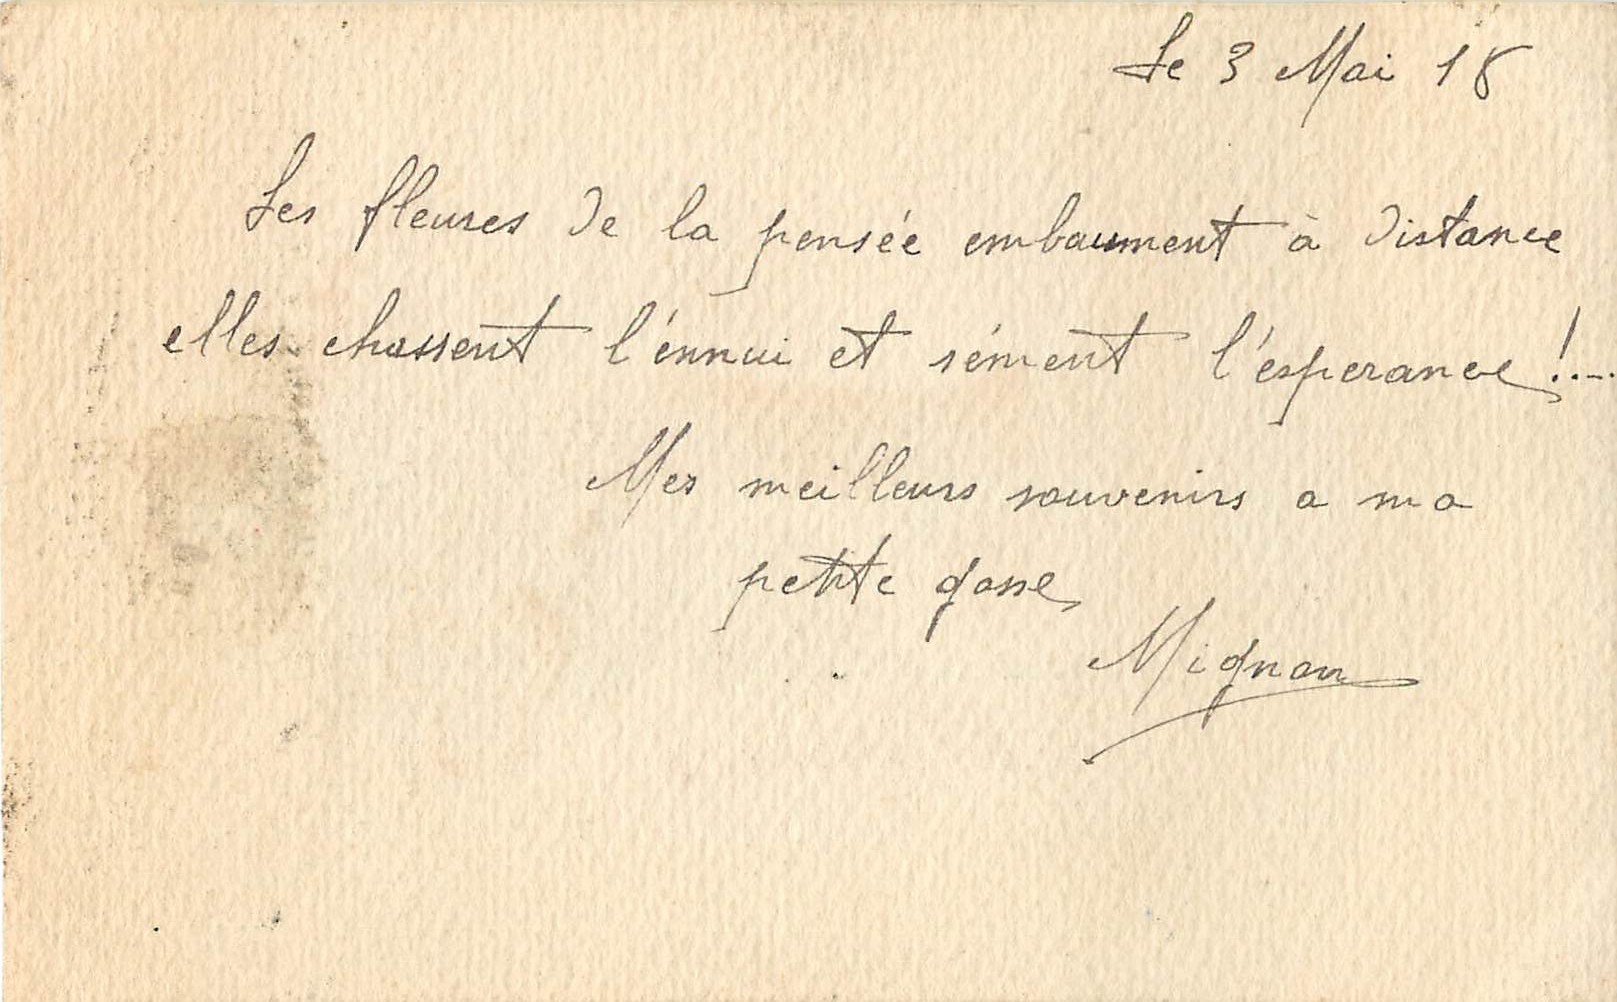 Le 3 Mai 18
Les fleures de la pensée embaument à distance
elles chassent l'énnui et sément l'ésperance !....
Mes meilleurs souvenirs a ma
petite gosse
Mignon